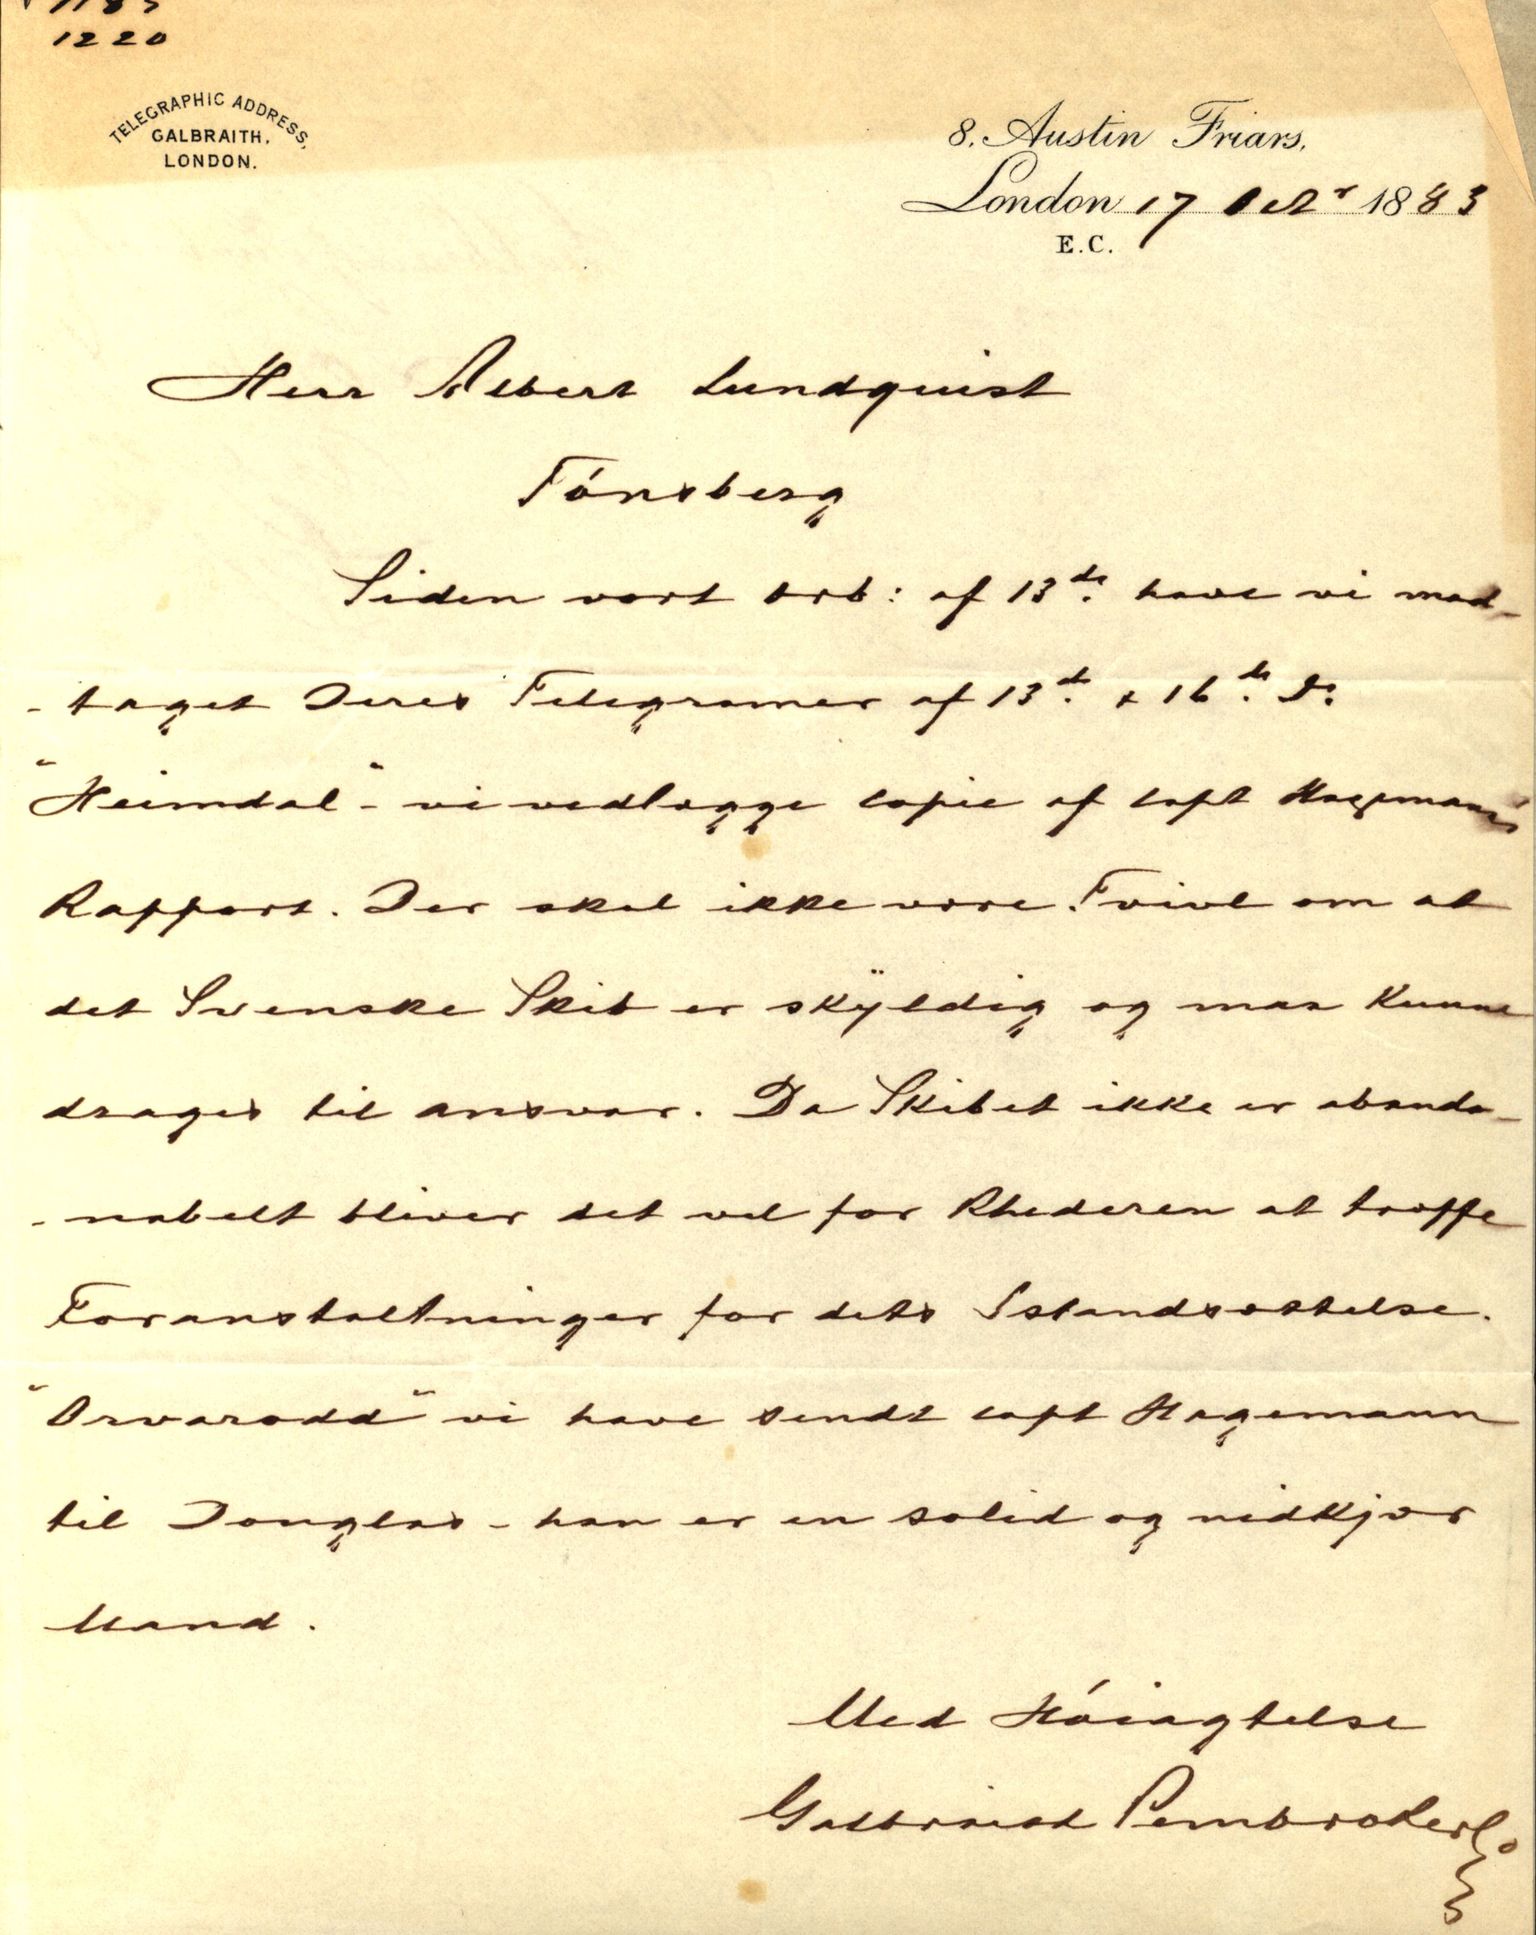 1220
TELEGRAPHIC ADDRESS,
GALBRAITH,
LONDON.
8, Austin Friars,
London 17 Octr 1883
E.C.
Herr Albert Lundquist
Tónsberg
Siden vort ærb: af 13de. have vi mod-
-taget Deres Telegramer af 13de. & 16de. Ds
"Heimdal" - vi vedlægge Copie af Capt Hagemanns
Rapport. Der skal ikke være Tvivl om at
det Svenske Skib er skÿldig og maa kunne
drages til ansvar. Da Skibet ikke er abando-
-nabelt bliver det vel for Rhederen at træffe
Foranstaltninger for dets Istandsættelse.
"Orvarodd" vi have sendt Capt Hagemann
til Douglas - han er en solid og nidkjær
Mand.
Med Hóiagtelse
Galbraith Pembroke & Co